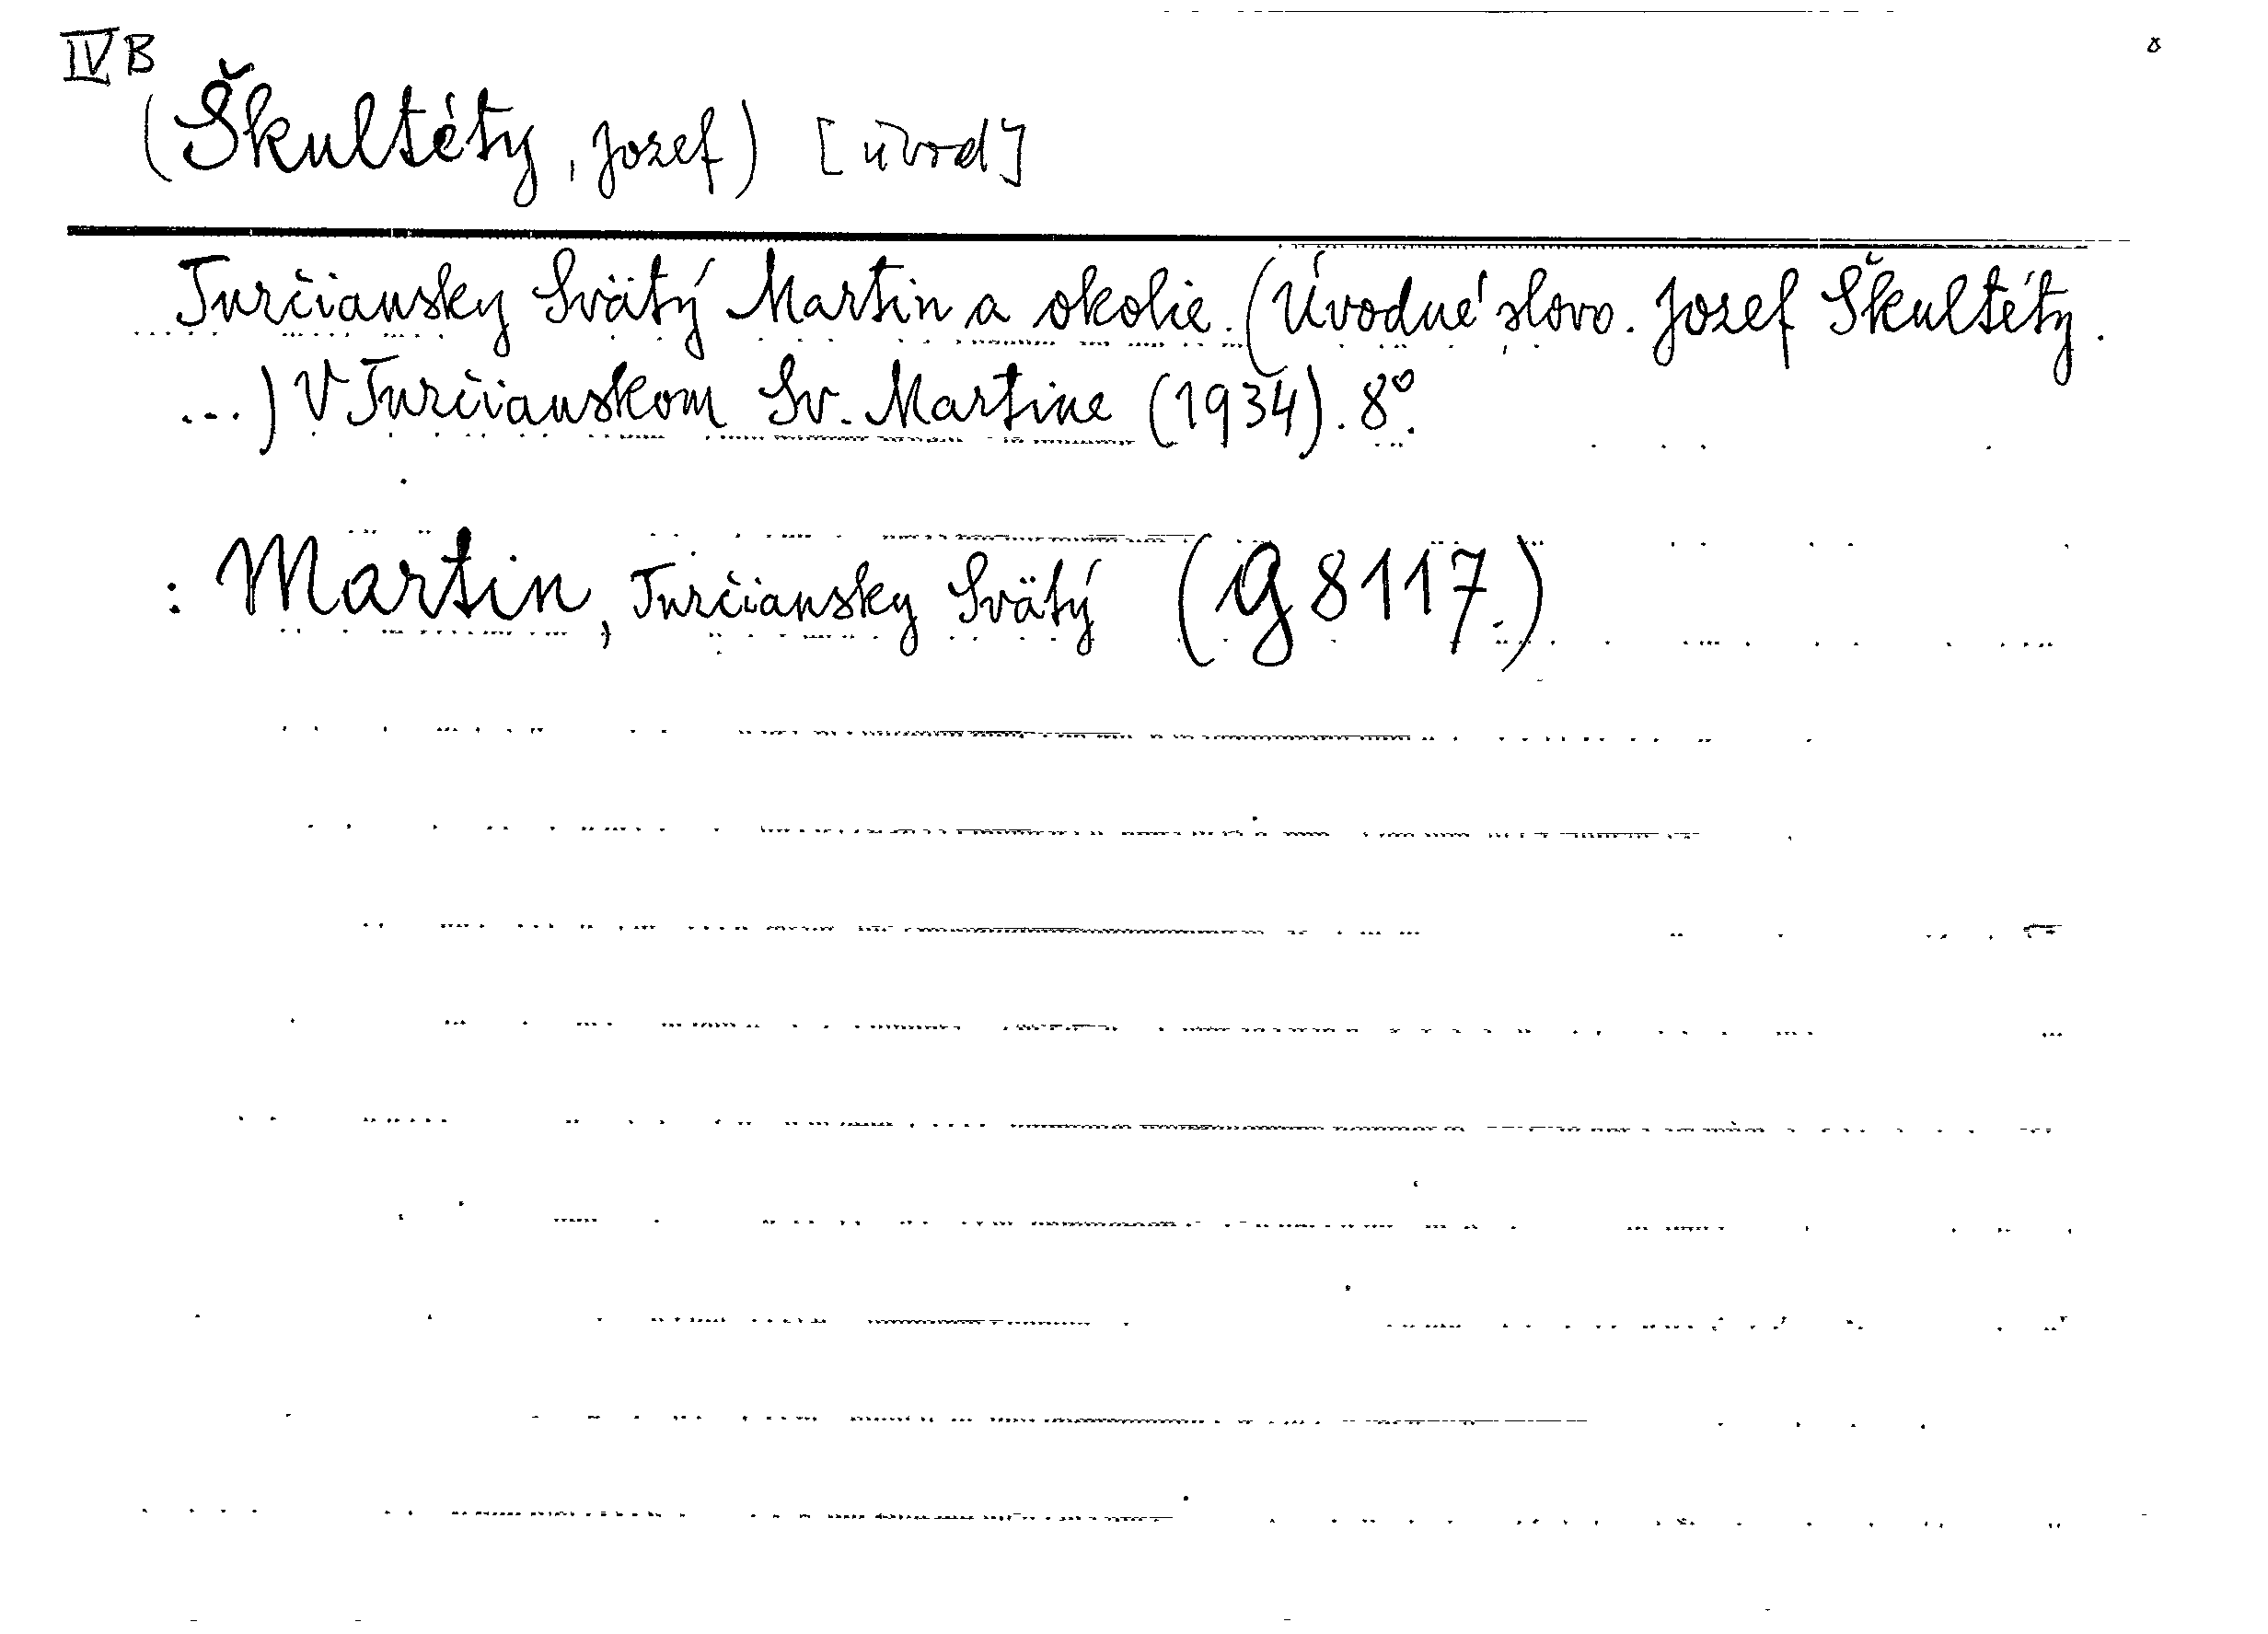 IV B
(Škultéty, Jozef) [úvod]
Turčiansky Svätý Martin a okolie. (Úvodné slovo. Jozef Škultéty.
...) V Turčianskom Sv. Martine (1934). 8°.
: Martin, Turčiansky Svätý (G 8117.)